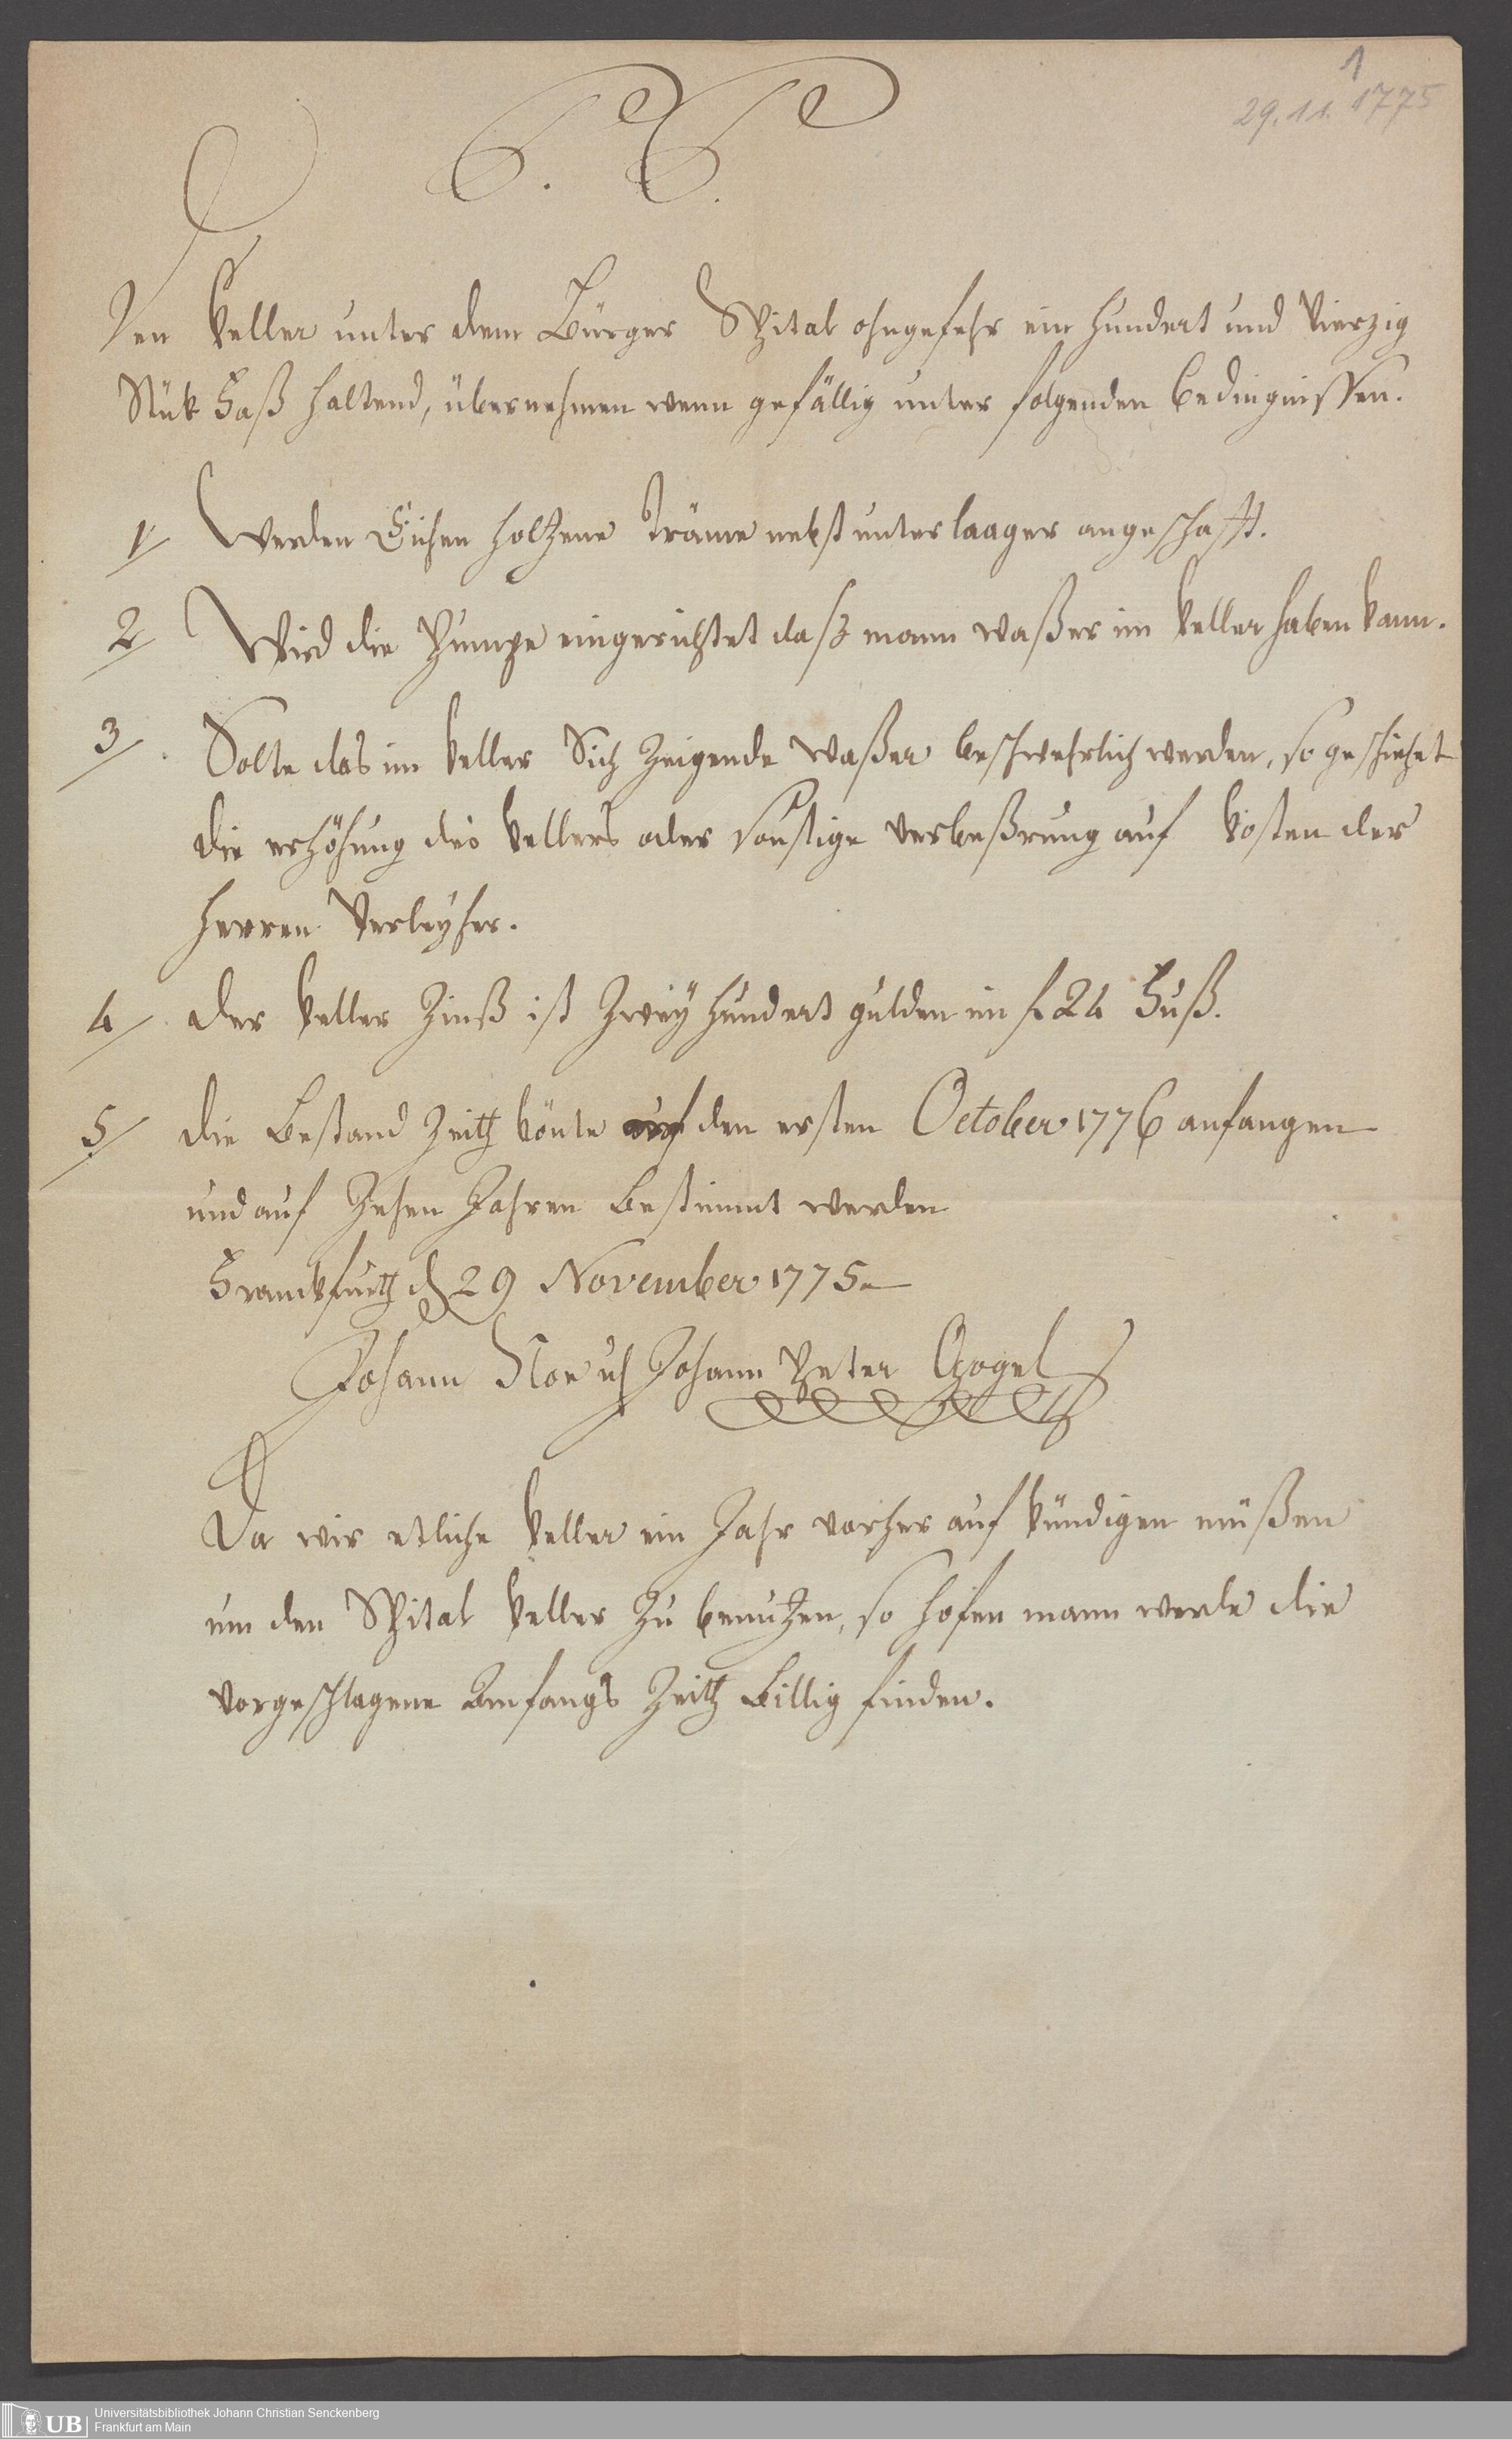 1
29. 11. 1775
P. P.
Den Keller unter dem Bürger Spital ohngefehr ein hundert und vierzig
Stük Faß haltend, übernehmen wenn gefällig unter folgenden bedingnissen.
1/ Werden Eichen holtzene Träme nebst unter laager angeschafft.
2/ Wird die Pumpe eingerichtet daß mann waßer im Keller haben kann.
3/ Solte das im Keller Sich Zeigende waßer beschwehrlich werden, so geschiehet
die erhöhung des Kellers oder sonstige verbeßrung auf Kosten der
herren Verleyher.
4/ der Keller Zinß ist Zwey hundert gulden im f 24 Fuß.
5/ die Bestand Zeith könte auf den ersten October 1776 anfangen
und auf Zehen Jahren bestimmt werden
Franckfurth d 29 November 1775
Johann Noe & Johann Peter Gogel
Da wir etliche Keller ein Jahr vorher auf kündigen müßen
um den Spital Keller zu benutzen, so hofen mann werde die
vorgeschlagene Anfangs Zeith billig finden.
UB
Universitätsbibliothek Johann Christian Senckenberg
Frankfurt am Main